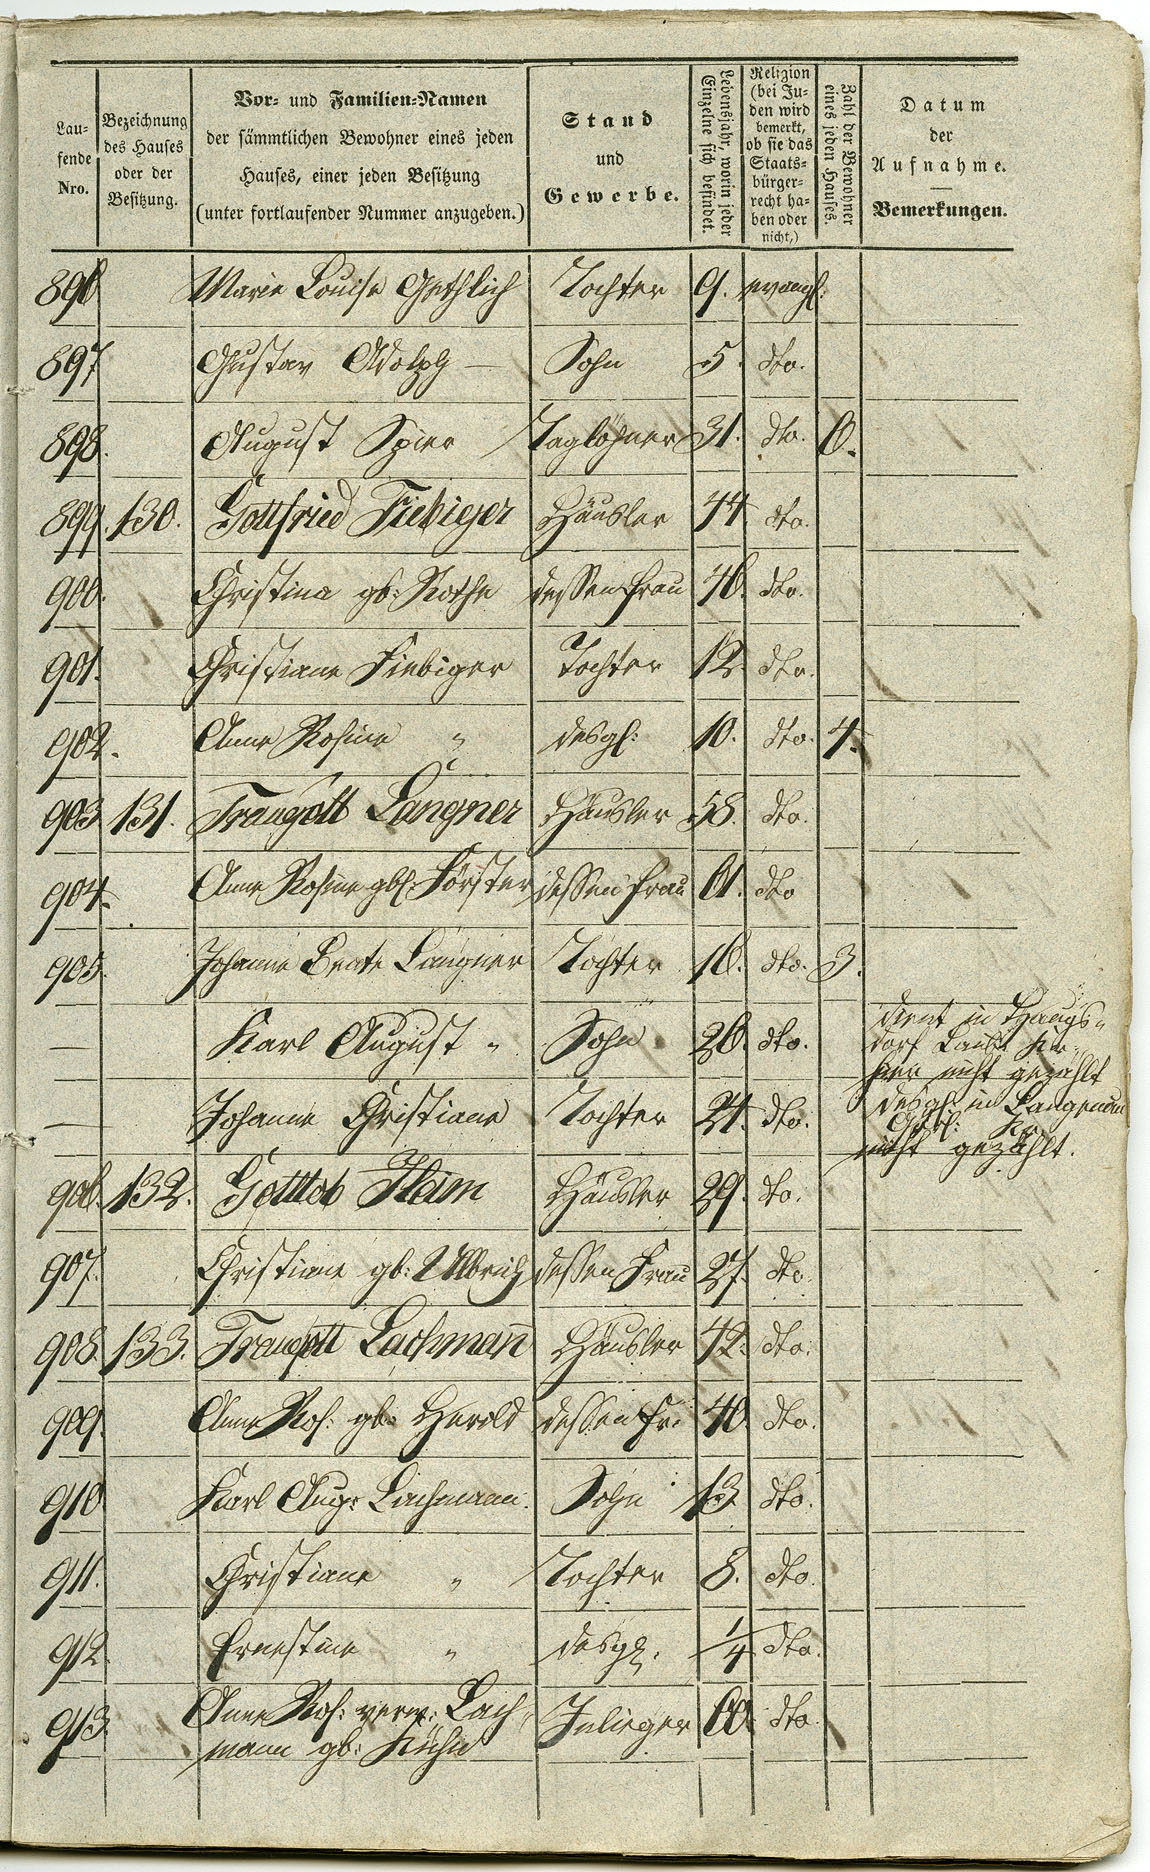 Lau-
fende
Nro.
Bezeichnung
des Hauses
oder der
Besitzung.
Vor- und Familien-Namen
der sämmtlichen Bewohner eines jeden
Hauses, einer jeden Besitzung
(unter fortlaufender Nummer anzugeben.)
Stand
und
Gewerbe.
Lebensjahr, worin jeder
Einzelne sich befindet.
Religion
(bei Ju-
den wird
bemerkt,
ob sie das
Staats-
bürger-
recht ha-
ben oder
nicht,)
Zahl der Bewohner
eines jeden Hauses.
Datum
der
Aufnahme.
Bemerkungen.
896 Marie Louise Tochter 9. evangl:
897 Gustav Adolph — Sohn 5. dto.
898. August Spier Taglöhner 31. dto. 6.
899. 130. Gottfried Fiebiger Häusler 44. dto.
900. Christina gb: Rothe dessen Frau 46. dto.
901. Christiane Fiebiger Tochter 12. dto.
902. Anne Rosine " desgl: 10. dto. 4.
903. 131. Traugott Langner Häusler 58. dto.
904. Anne Rosine gb: Förster dessen Frau 61. dto
905. Johanne Beate Langner Tochter 16. dto. 3.
— Karl August " Sohn 26. dto. dient in Haugs-
dorf Laub: Kr.
hier nicht gezählt
— Johanne Christiane Tochter 24. dto. desgl: in Langenau
Görl: Kr.
nicht gezählt.
906. 132. Gottlob Heim Häusler 29. dto.
907. Christiane gb: Ulbrich dessen Frau 27. dto.
908. 133. Traugott Lachmann Häusler 42. dto.
909. Anne Ros: gb: Herold dessen Fr: 40. dto.
910 Karl Aug: Lachmann. Sohn 13. dto.
911. Christiane " Tochter 8. dto.
912 Ernestine " desgl. 1/4 dto.
913. Anne Ros: verw: Lach-
mann gb: Kühn Inlieger 60. dto.